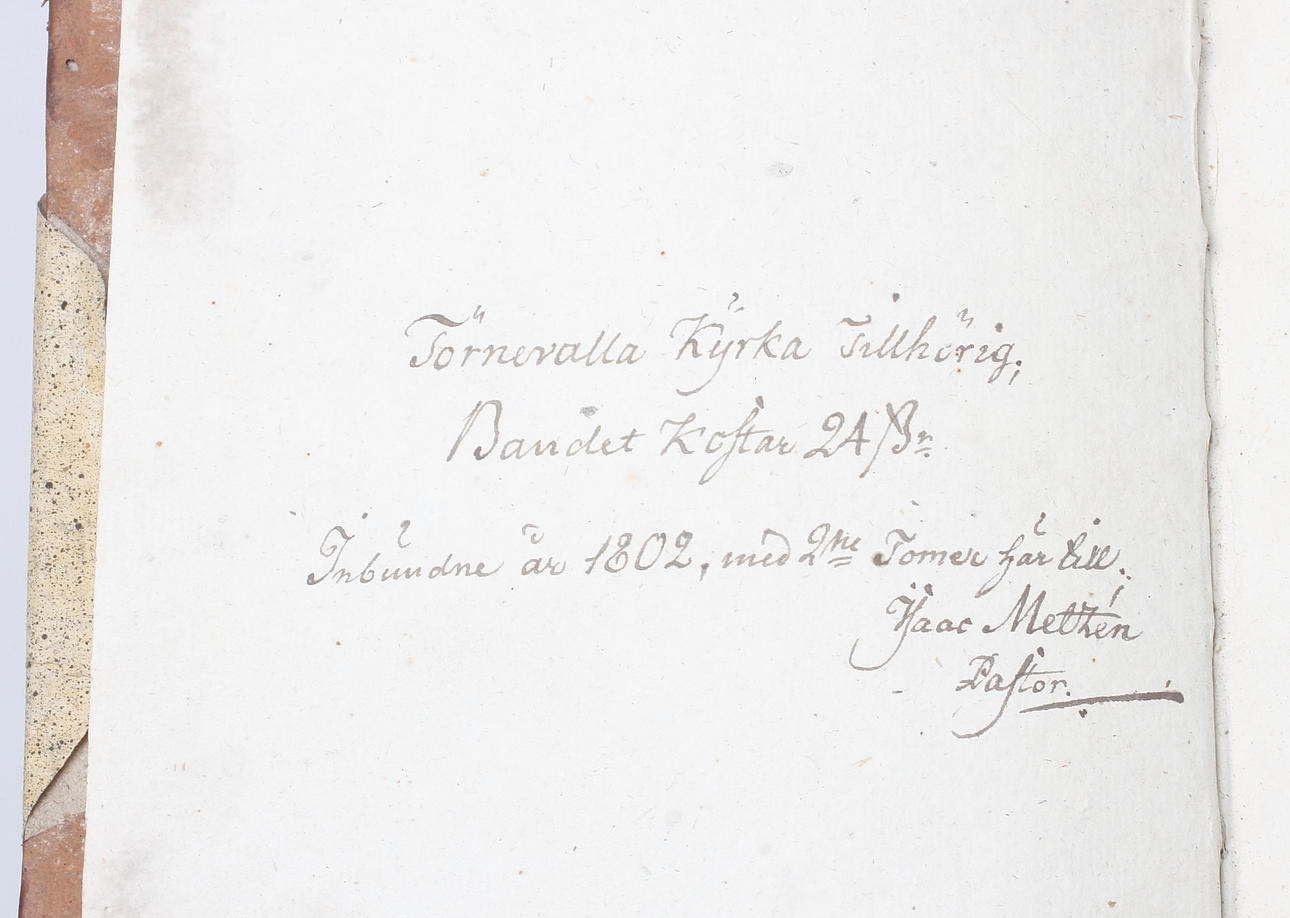 Törnevalla Kyrka Tillhörig;
Bandet Kostar 24 ßr.
Inbundne år 1802, med 2ne Tomer här till;
Isaac Metzén
Pastor.